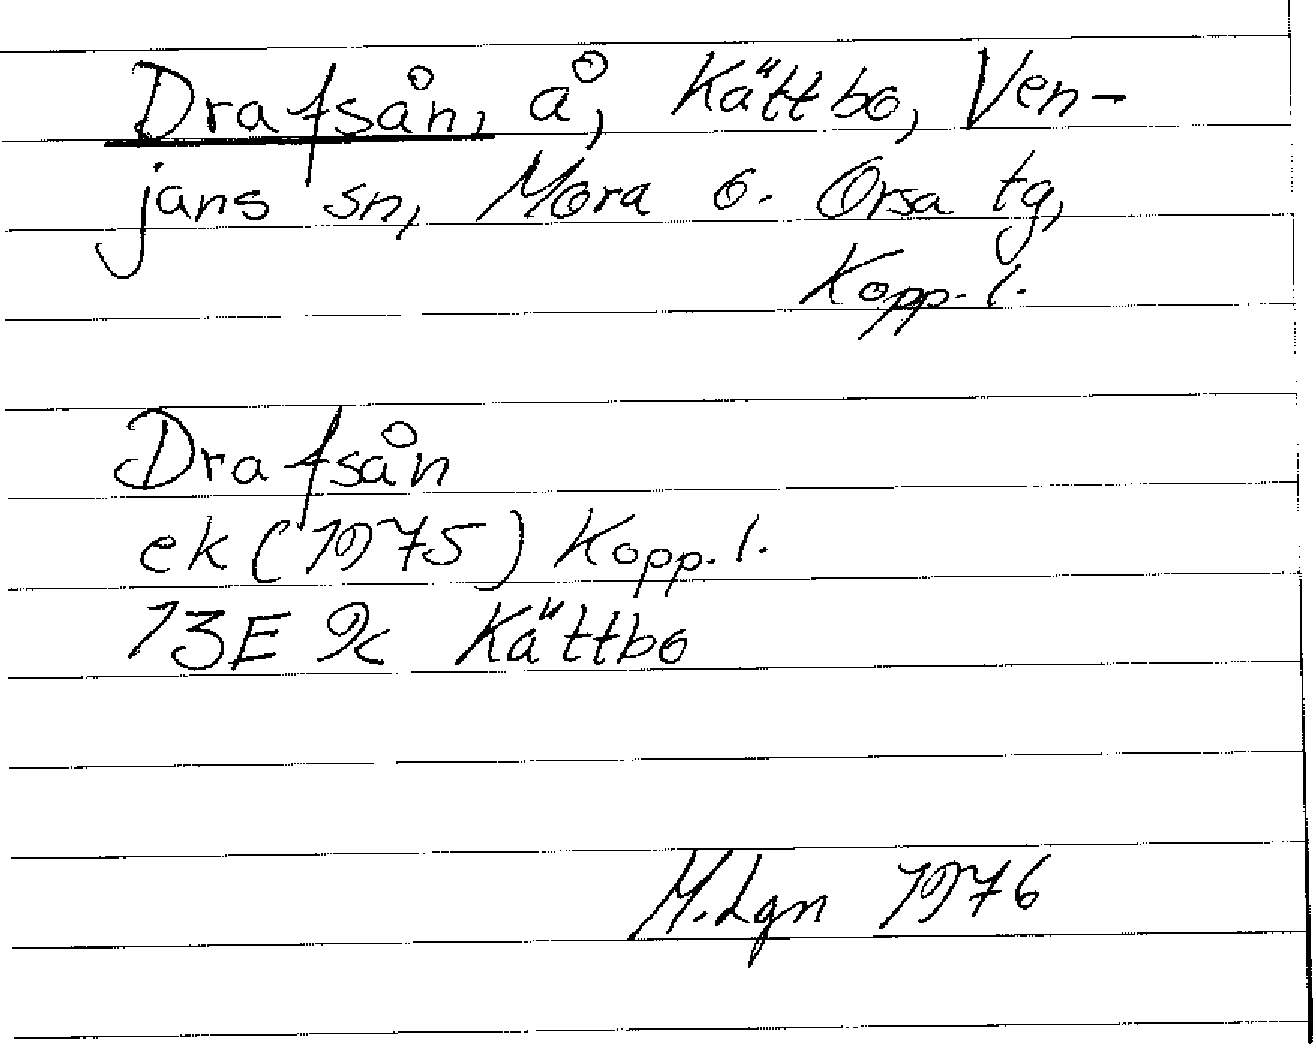 Drafsån, å, Kättbo, Ven-
jans sn, Mora o. Orsa tg,
Kopp. l.
Drafsån
ek (1975) Kopp. l.
13E 9c Kättbo
M. Lgn 1976